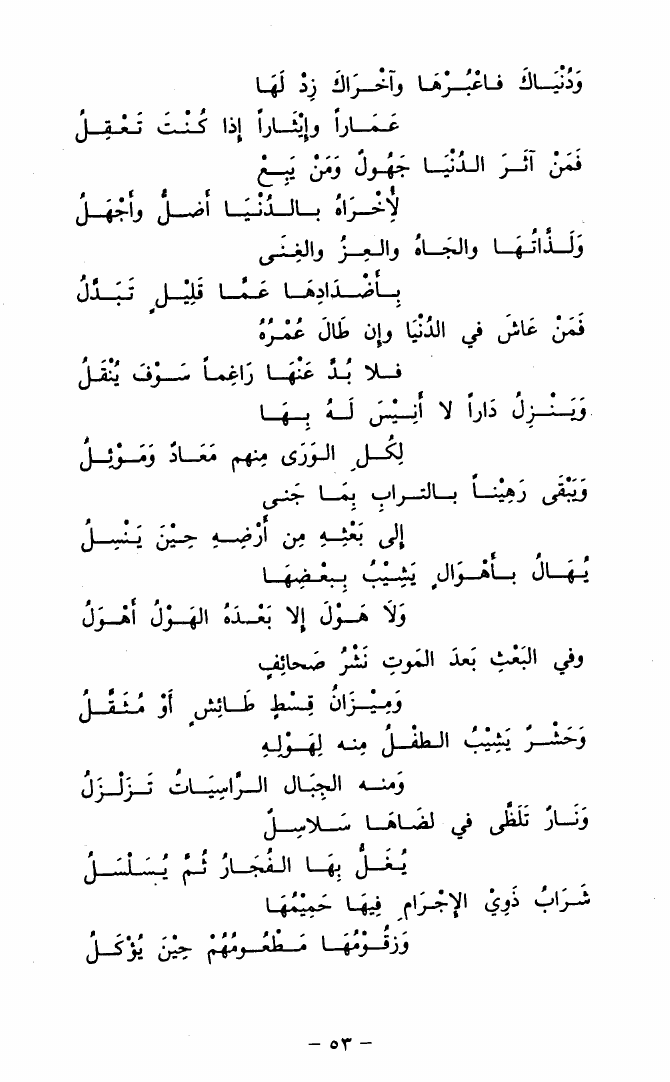 وَدُنْيَاكَ فاعْبُرْهَا وآخْرَاكَ زِدْ لَهَا
عَمَاراً وإيْثَاراً إذا كُنْتَ تَعْقِلُ
فَمَنْ آثَرَ الدُنْيَا جَهُولٌ وَمَنْ يَبِعْ
لأِخْرَاهُ بالدُنْيَا أضلُ وأجْهَلُ
وَلَذَّاتُهَا والجَاهُ والعِزُ والغِنَى
بِأَضْدَادِهَا عَمَّا قَلِيْلٍ تَبَدَّلُ
فَمَنْ عَاشَ في الدُنْيَا وإن طَالَ عُمْرُهُ
فلا بُدَّ عَنْهَا رَاغِماً سَوْفَ يُنْقَلُ
وَيَنْزِلُ دَاراً لا أَنِيْسَ لَهُ بِهَا
لِكُلِ الوَرَى مِنهم مَعَادٌ وَمَوْئِلُ
وَيَبْقَى رَهِيْناً بالترابِ بِمَا جَنى
إلى بَعْثِهِ مِن أَرْضِهِ حِيْنَ يَنْسِلُ
يُهَالُ بأَهْوَالٍ يَشِيْبُ بِبعْضِهَا
وَلَا هَوْلَ إلا بَعْدَهُ الهَوْلُ أَهْوَلُ
وفي البَعْثِ بَعدَ المَوتِ نَشْرُ صَحائِفٍ
وَمِيْزَانُ قِسْطٍ طَائِشٍ أَوْ مُثَقَّلُ
وَحَشْرٌ يَشِيْبُ الطفْلُ مِنه لِهَوْلِهِ
وَمنه الجِبَال الرَّاسِيَاتُ تَزَلْزَلُ
وَنَارٌ تَلَظَّى في لَضَاهَا سَلاسِلٌ
يُغَلُّ بِهَا الفُجَارُ ثُمَّ يُسَلْسَلُ
شَرَابُ ذَوِيْ الإجْرَامِ فِيهَا حَمِيْمُهَا
وَزَقُوْمُهَا مَطْعُومُهُمْ حِيْنَ يُؤْكَلُ
- ٥٣ -